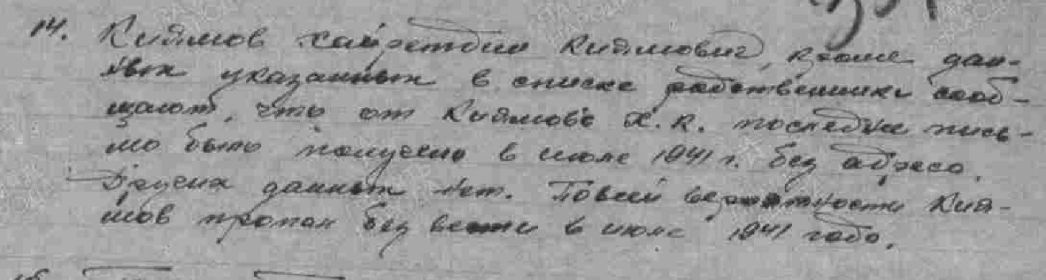 14. Киямов Хайретдин Киямович, кроме дан-
ных указанных в списке родственники сооб-
щают, что от Киямова Х.К. последнее пись-
мо было получено в июле 1941 г. без адреса.
Других данных нет. По всей вероятности Кия-
мов пропал без вести в июле 1941 года.